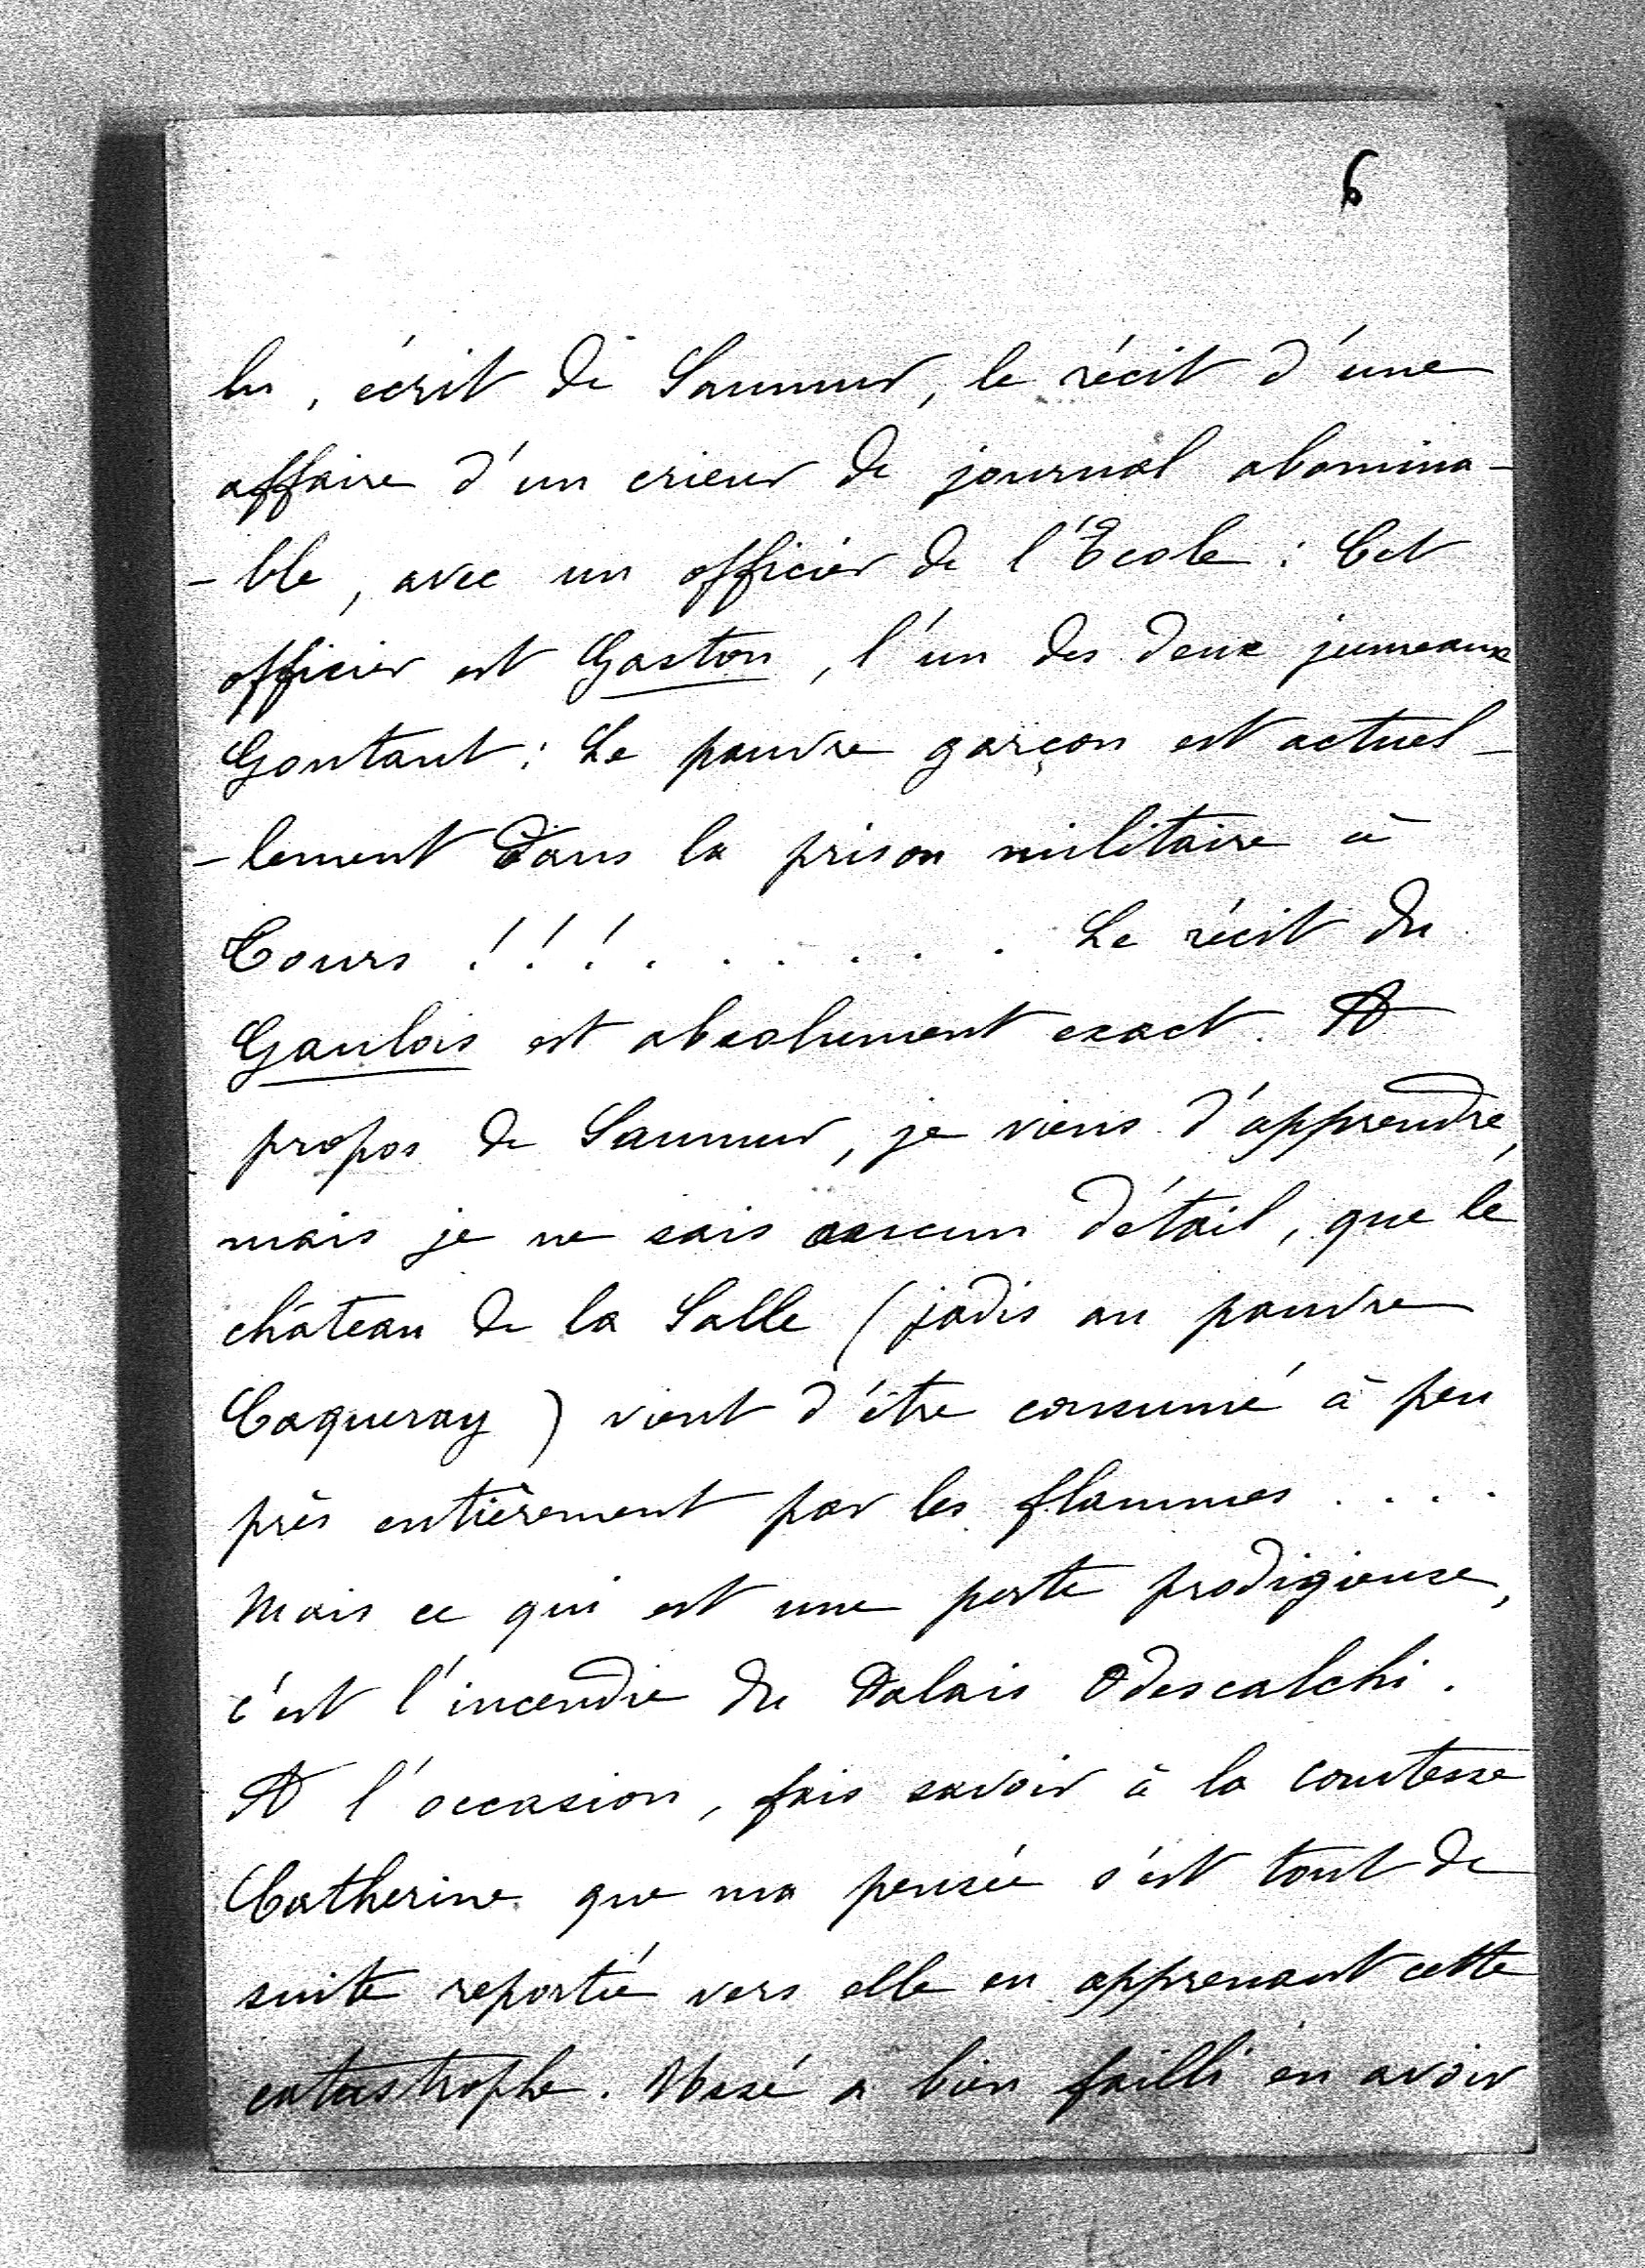 6
lu, écrit de Saumur, le récit d'une
affaire d'un crieur de journal abomina-
-ble, avec un officier de l'Ecole : Cet
officier est Gaston, l'un des deux jumeaux
Gontaut : Le pauvre garçon est actuel-
-lement dans la prison militaire à
Tours !!! . . . . . . . Le récit du
Gaulois est absolument exact. A
propos de Saumur, je viens d'apprendre,
mais je ne sais aucun détail, que le
château de la Salle (jadis au pauvre
Caqueray) vient d'être consumé à peu
près entièrement par les flammes . . . .
Mais ce qui est une perte prodigieuse,
c'est l'incendie du Palais Odescalchi.
A l'occasion, fais savoir à la comtesse
Catherine que ma pensée s'est tout de
suite reportée vers elle en apprenant cette
catastrophe. a bien failli en avoir